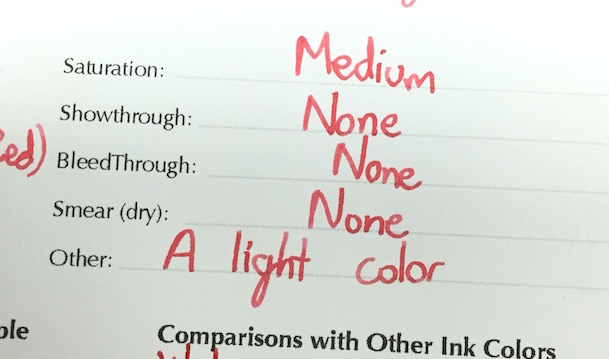 Saturation: Medium
Showthrough: None
BleedThrough: None
Smear (dry): None
Other: A light color
Comparisons with Other Ink Colors